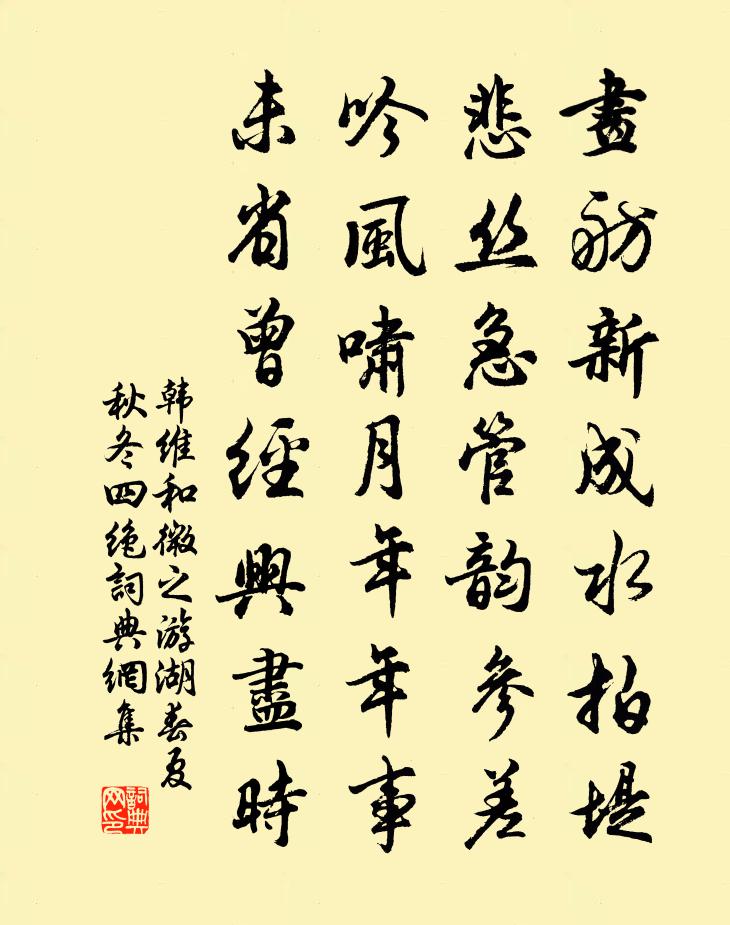 畫舫新成水拍堤
悲丝急管韵參差
吟風嘯月年年事
未省曾經興盡時
韩維和微之游湖春夏
秋冬四绝詞典網集
詞典
网印